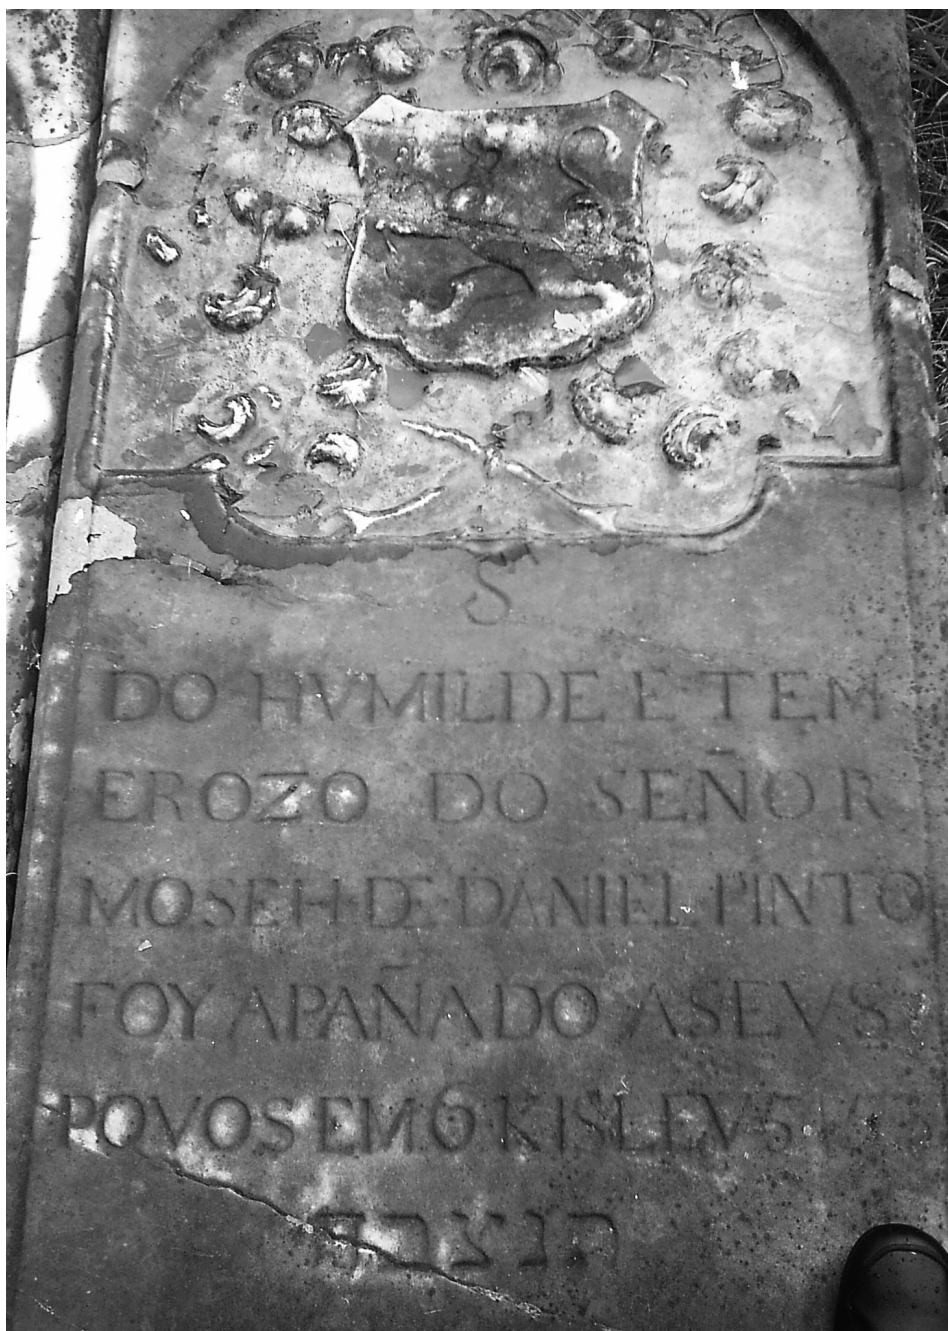 Sᴬ
DO HVMILDE E TEM
EROZO DO SEÑOR
MOSEH DE DANIEL PINTO
FOY APAÑADO A SEVS
POVOS EM 6 KISLEV
תנצבה